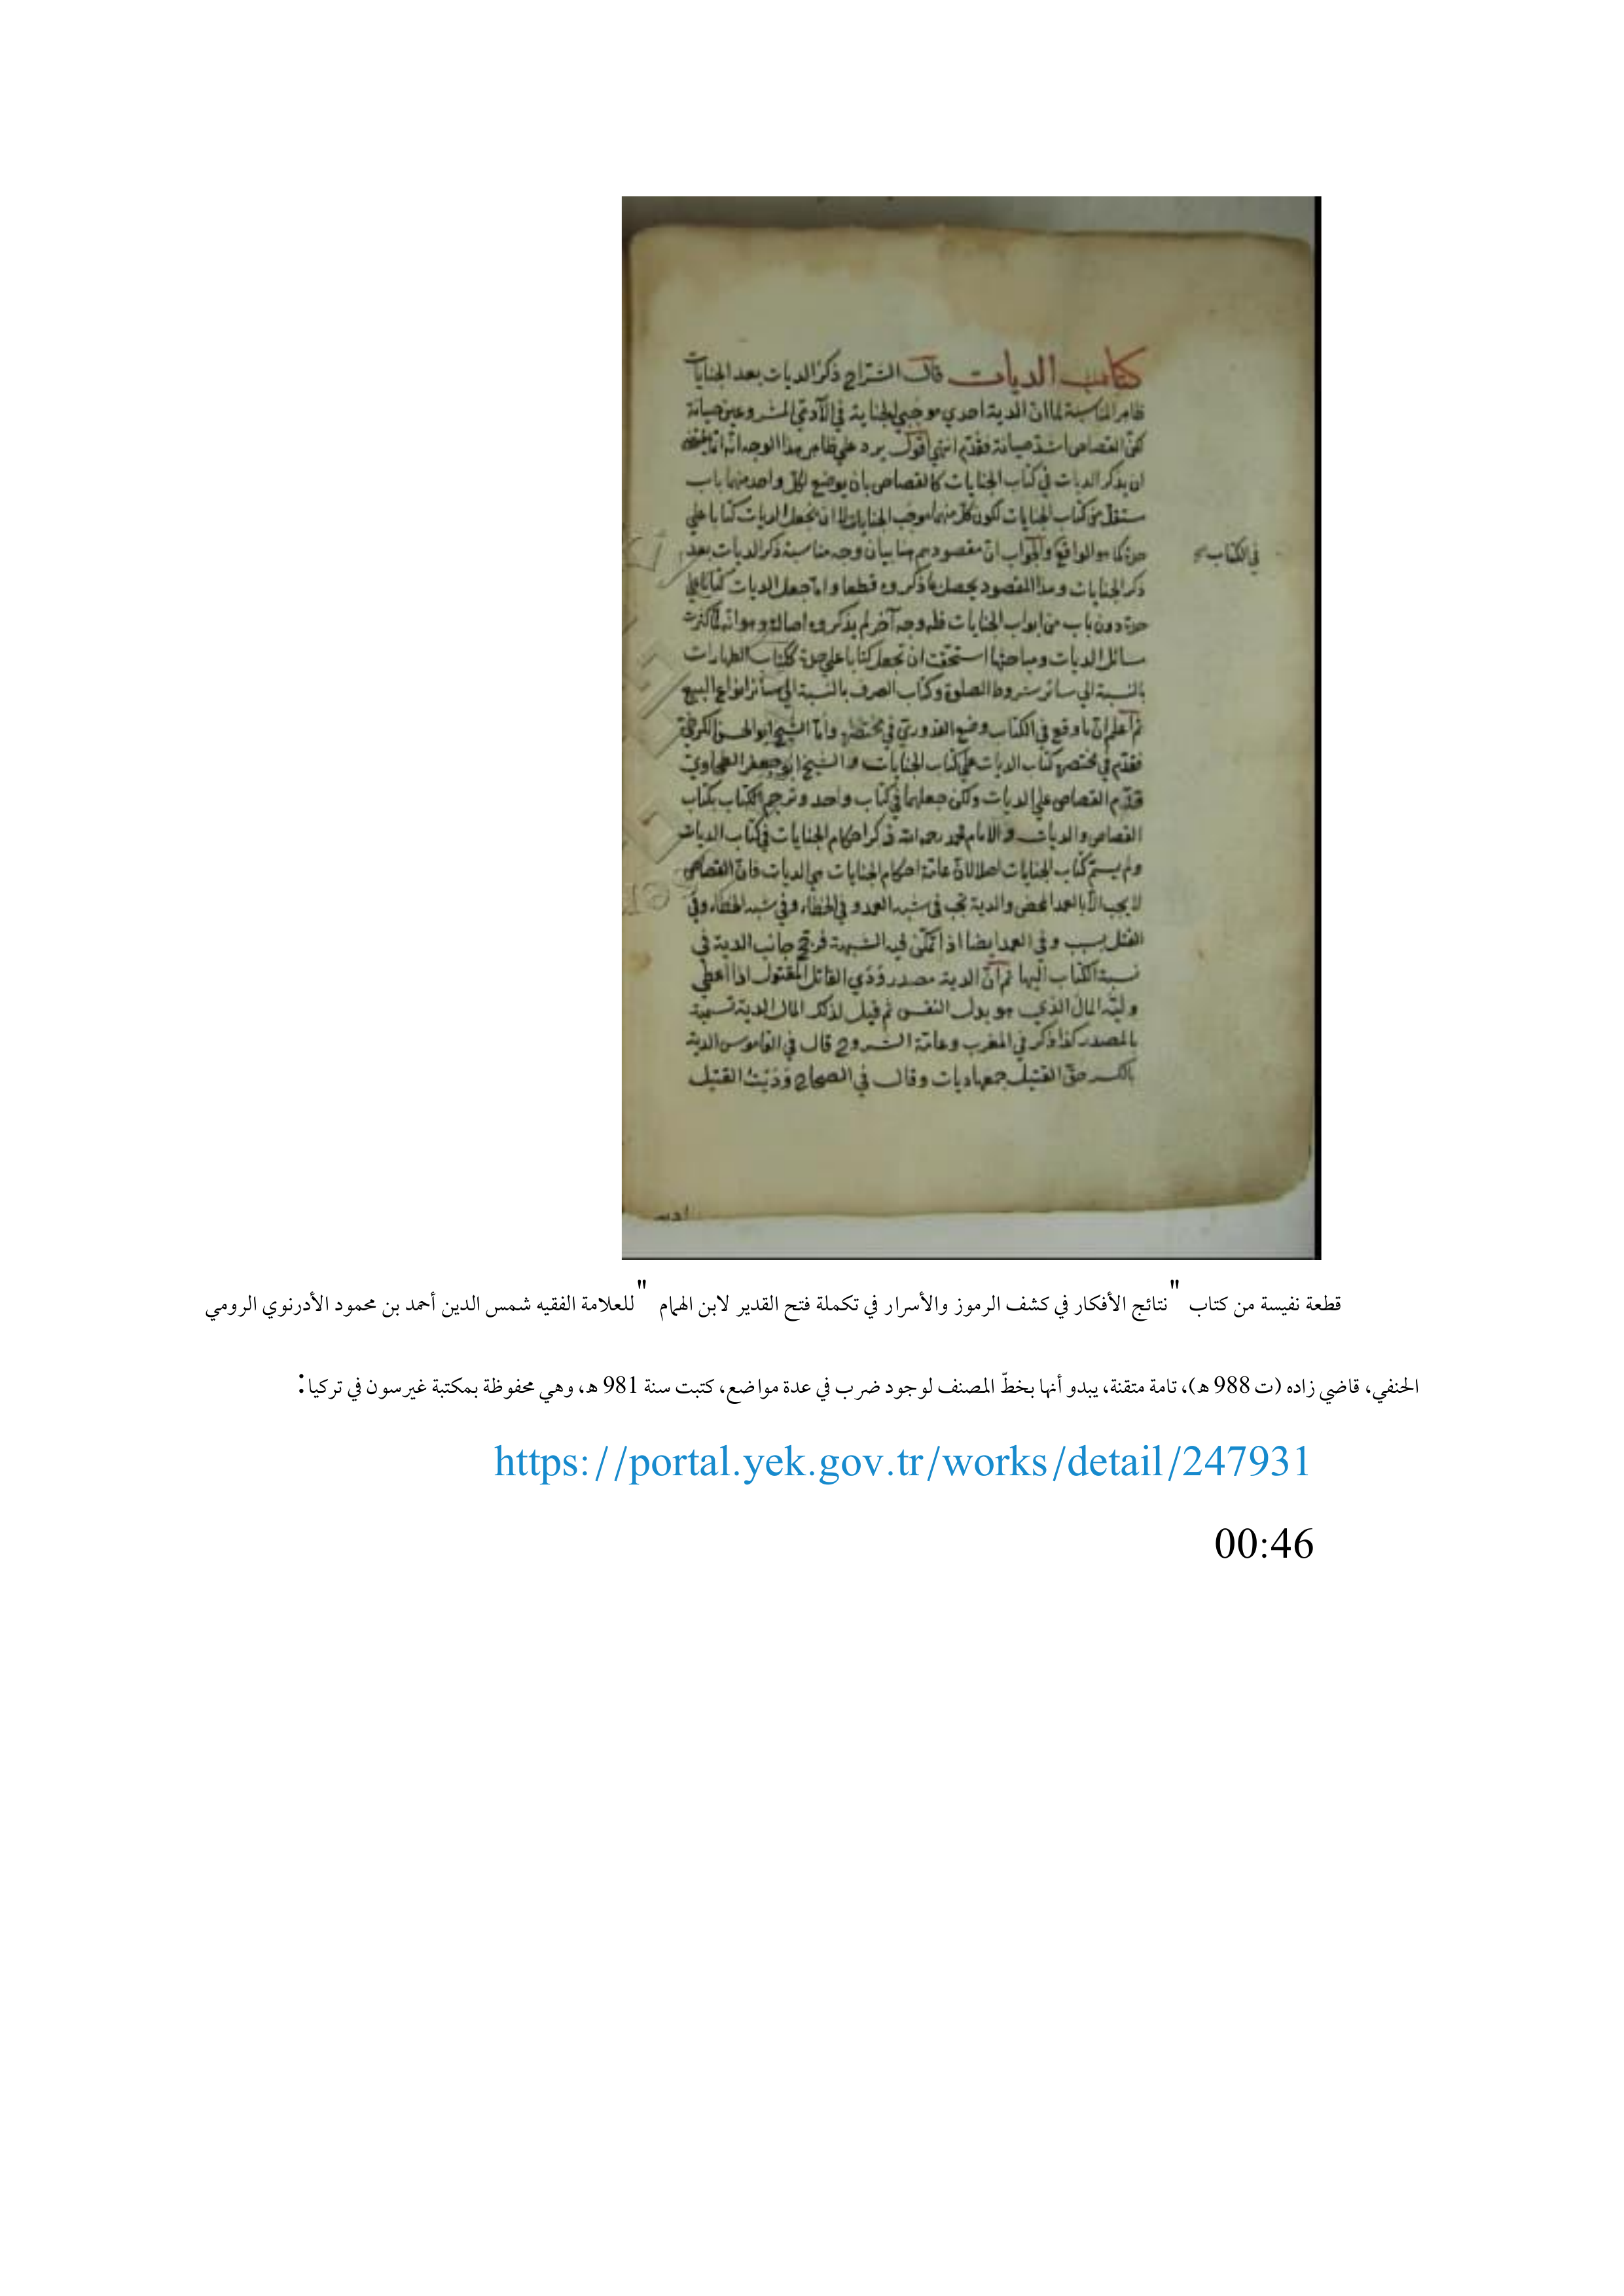 كتاب الديات قال الشراح ذكر الديات بعد الجنايات
ظاهر المناسبة لما ان الدية احدي موجبي الجناية في الآدمي المشروعين صيانة
لكن القصاص اشد صيانة فقدم انتهي اقول يرد علي ظاهر هذا الوجه انه انما
ان يذكر الديات في كتاب الجنايات كالقصاص بان يوضع لكل واحد منهما باب
مستقل من كتاب الجنايات لكون كل منهما موجب الجنايات لا ان يجعل الديات كتابا علي
حدة كما هو الواقع والجواب ان مقصودهم هنا بيان وجه مناسبة ذكر الديات بعد
في الكتاب صح
ذكر الجنايات وهذا المقصود يحصل بما ذكروه قطعا واما جعل الديات كتابا علي
حدة دون باب من ابواب الجنايات فله وجه آخر لم يذكروه اصالة وهو انه لما كثرت
مسائل الديات ومباحثها استحقت ان تجعل كتابا علي حدة ككتاب الطهارات
بالنسبة الي سائر شروط الصلوة وكتاب الصرف بالنسبة الي سائر انواع البيع
ثم اعلم ان ما وقع في الكتاب وضع القدوري في مختصره واما الشيخ ابو الحسن الكرخي
فقدم في مختصره كتاب الديات علي كتاب الجنايات والشيخ ابو جعفر الطحاوي
قدم القصاص علي الديات ولكن جعلهما في كتاب واحد وترجم الكتاب بكتاب
القصاص والديات والامام محمد رحمه الله ذكر احكام الجنايات في كتاب الديات
ولم يسم كتاب الجنايات اصلا لان عامة احكام الجنايات هي الديات فان القصاص
لا يجب الا بالعمد المحض والدية تجب في شبه العمد وفي الخطاء وفي شبه الخطاء وفي
القتل بسبب وفي العمد ايضا اذا تمكن فيه الشبهة فرجح جانب الدية في
نسبة الكتاب اليها ثم ان الدية مصدر ودي القاتل المقتول اذا اعطي
وليه المال الذي هو بدل النفس ثم قيل لذلك المال الدية تسمية
بالمصدر كذا ذكر في المغرب وعامة الشروح قال في القاموس الدية
بالكسر حق القتيل جمعها ديات وقال في الصحاح وديت القتيل
قطعة نفيسة من كتاب "نتائج الأفكار في كشف الرموز والأسرار في تكملة فتح القدير لابن الهمام "للعلامة الفقيه شمس الدين أحمد بن محمود الأدرنوي الرومي
الحنفي، قاضي زاده (ت 988 هـ)، تامة متقنة، يبدو أنها بخطّ المصنف لوجود ضرب في عدة مواضع، كتبت سنة 981 هـ، وهي محفوظة بمكتبة غيرسون في تركيا:
https://portal.yek.gov.tr/works/detail/247931
00:46